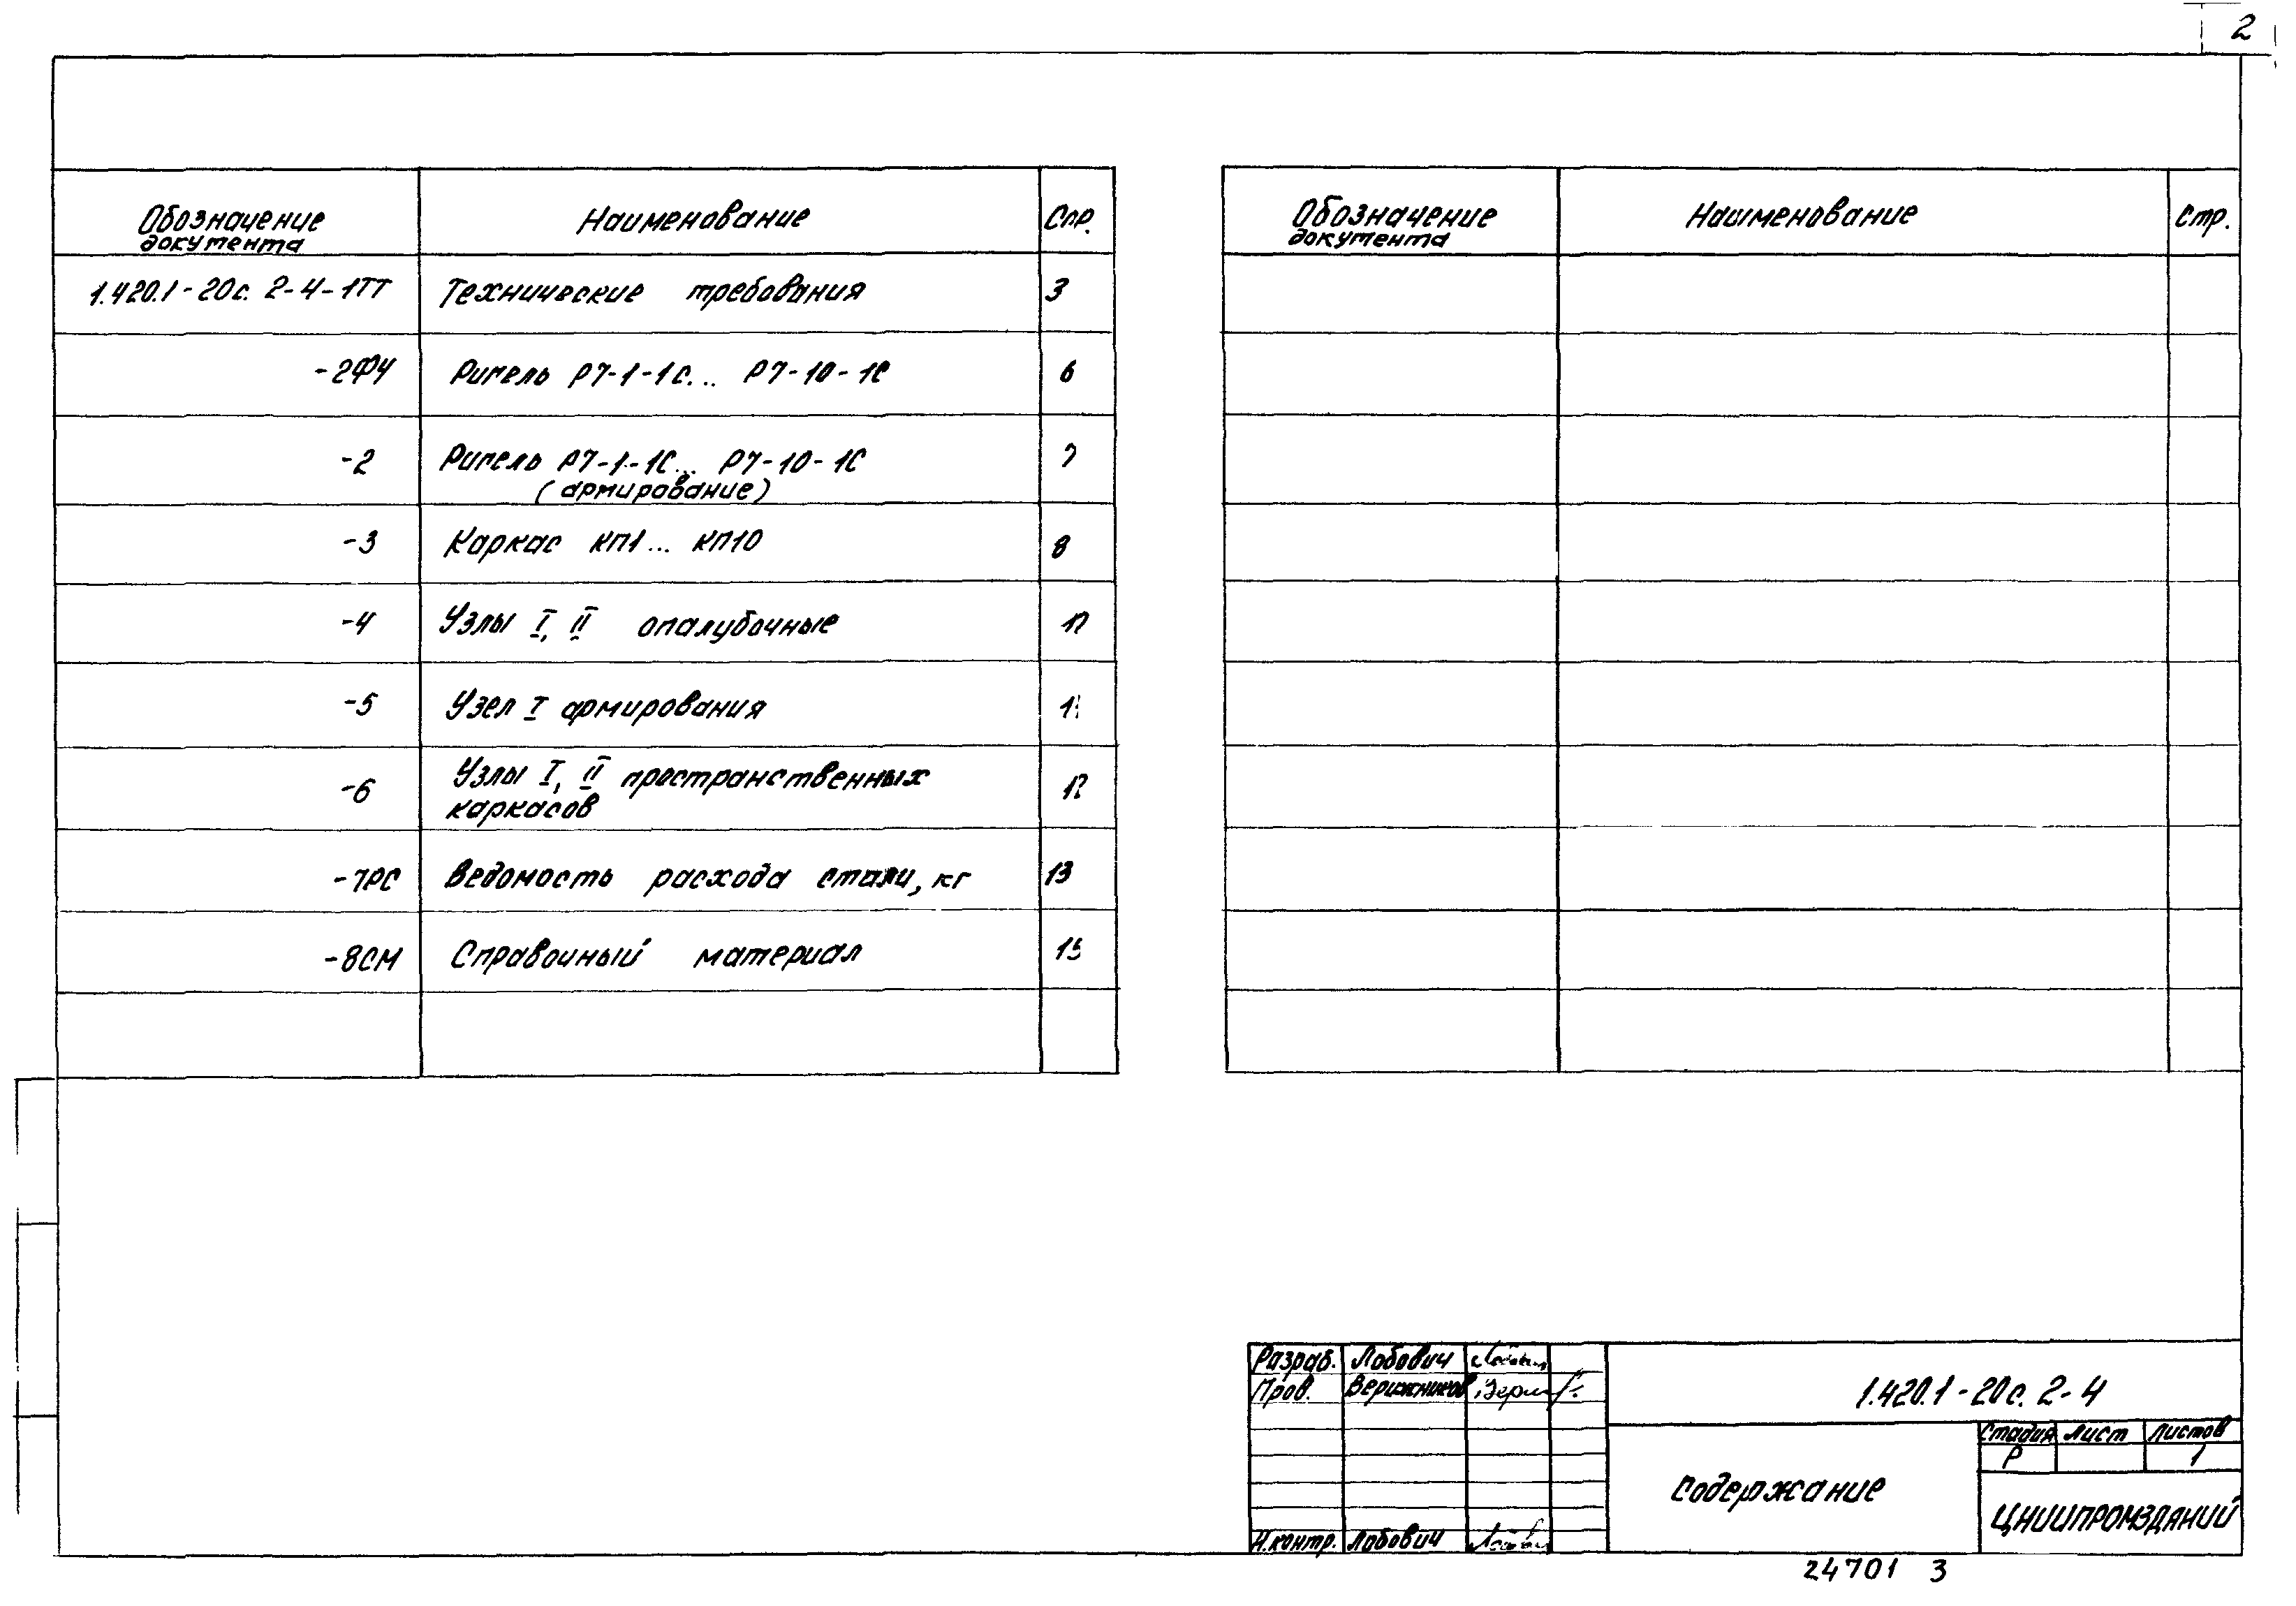 2
Обозначение документа Наименование Стр.
1.420.1-20с. 2-4-1ТТ Технические требования 3
-2ФЧ Ригель Р7-1-1С... Р7-10-1С 6
-2 Ригель Р7-1-1С... Р7-10-1С 7
(армирование)
-3 Каркас КП1... КП10 8
-4 Узлы I, II опалубочные
-5 Узел I армирования
-6 Узлы I, II пространственных
каркасов 12
-7РС Ведомость расхода стали, кг 13
-8СМ Справочный материал 15
Обозначение документа Наименование Стр.
Разраб. Лобович
Пров. Верижников
Н.контр. Лобович
1.420.1-20с. 2-4
Содержание
Стадия Лист Листов
Р 1
ЦНИИПРОМЗДАНИЙ
24701 3